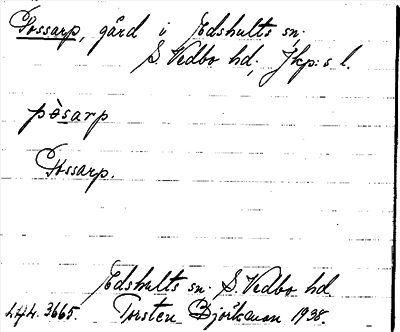 Possarp, gård i Edshults sn.
S. Vedbo hd, Jkp:s l.
pòsarp
Possarp.
Edshults sn. S. Vedbo hd.
3665. Torsten Björkman 1938.